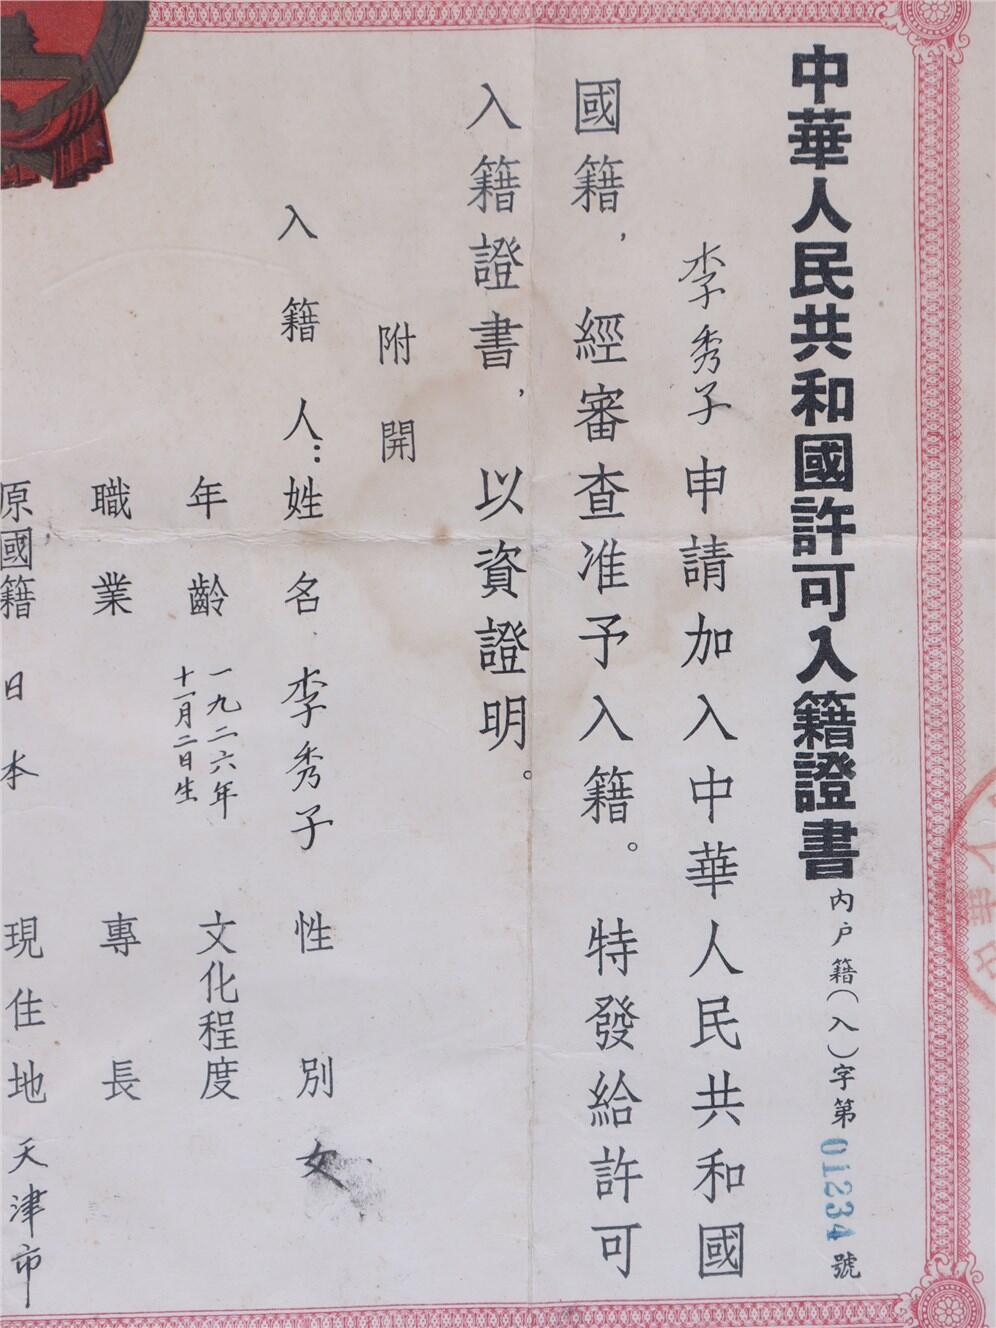 中華人民共和國許可入籍證書 內户籍(入)字第01234號
李秀子申請加入中華人民共和國
國籍，經審查准予入籍。特發給許可
入籍證書，以資證明。
附開
入籍人：姓名 李秀子 性別 女
年齡 一九二六年十一月二日生 文化程度
職業 專長
原國籍 日本 現住地 天津市